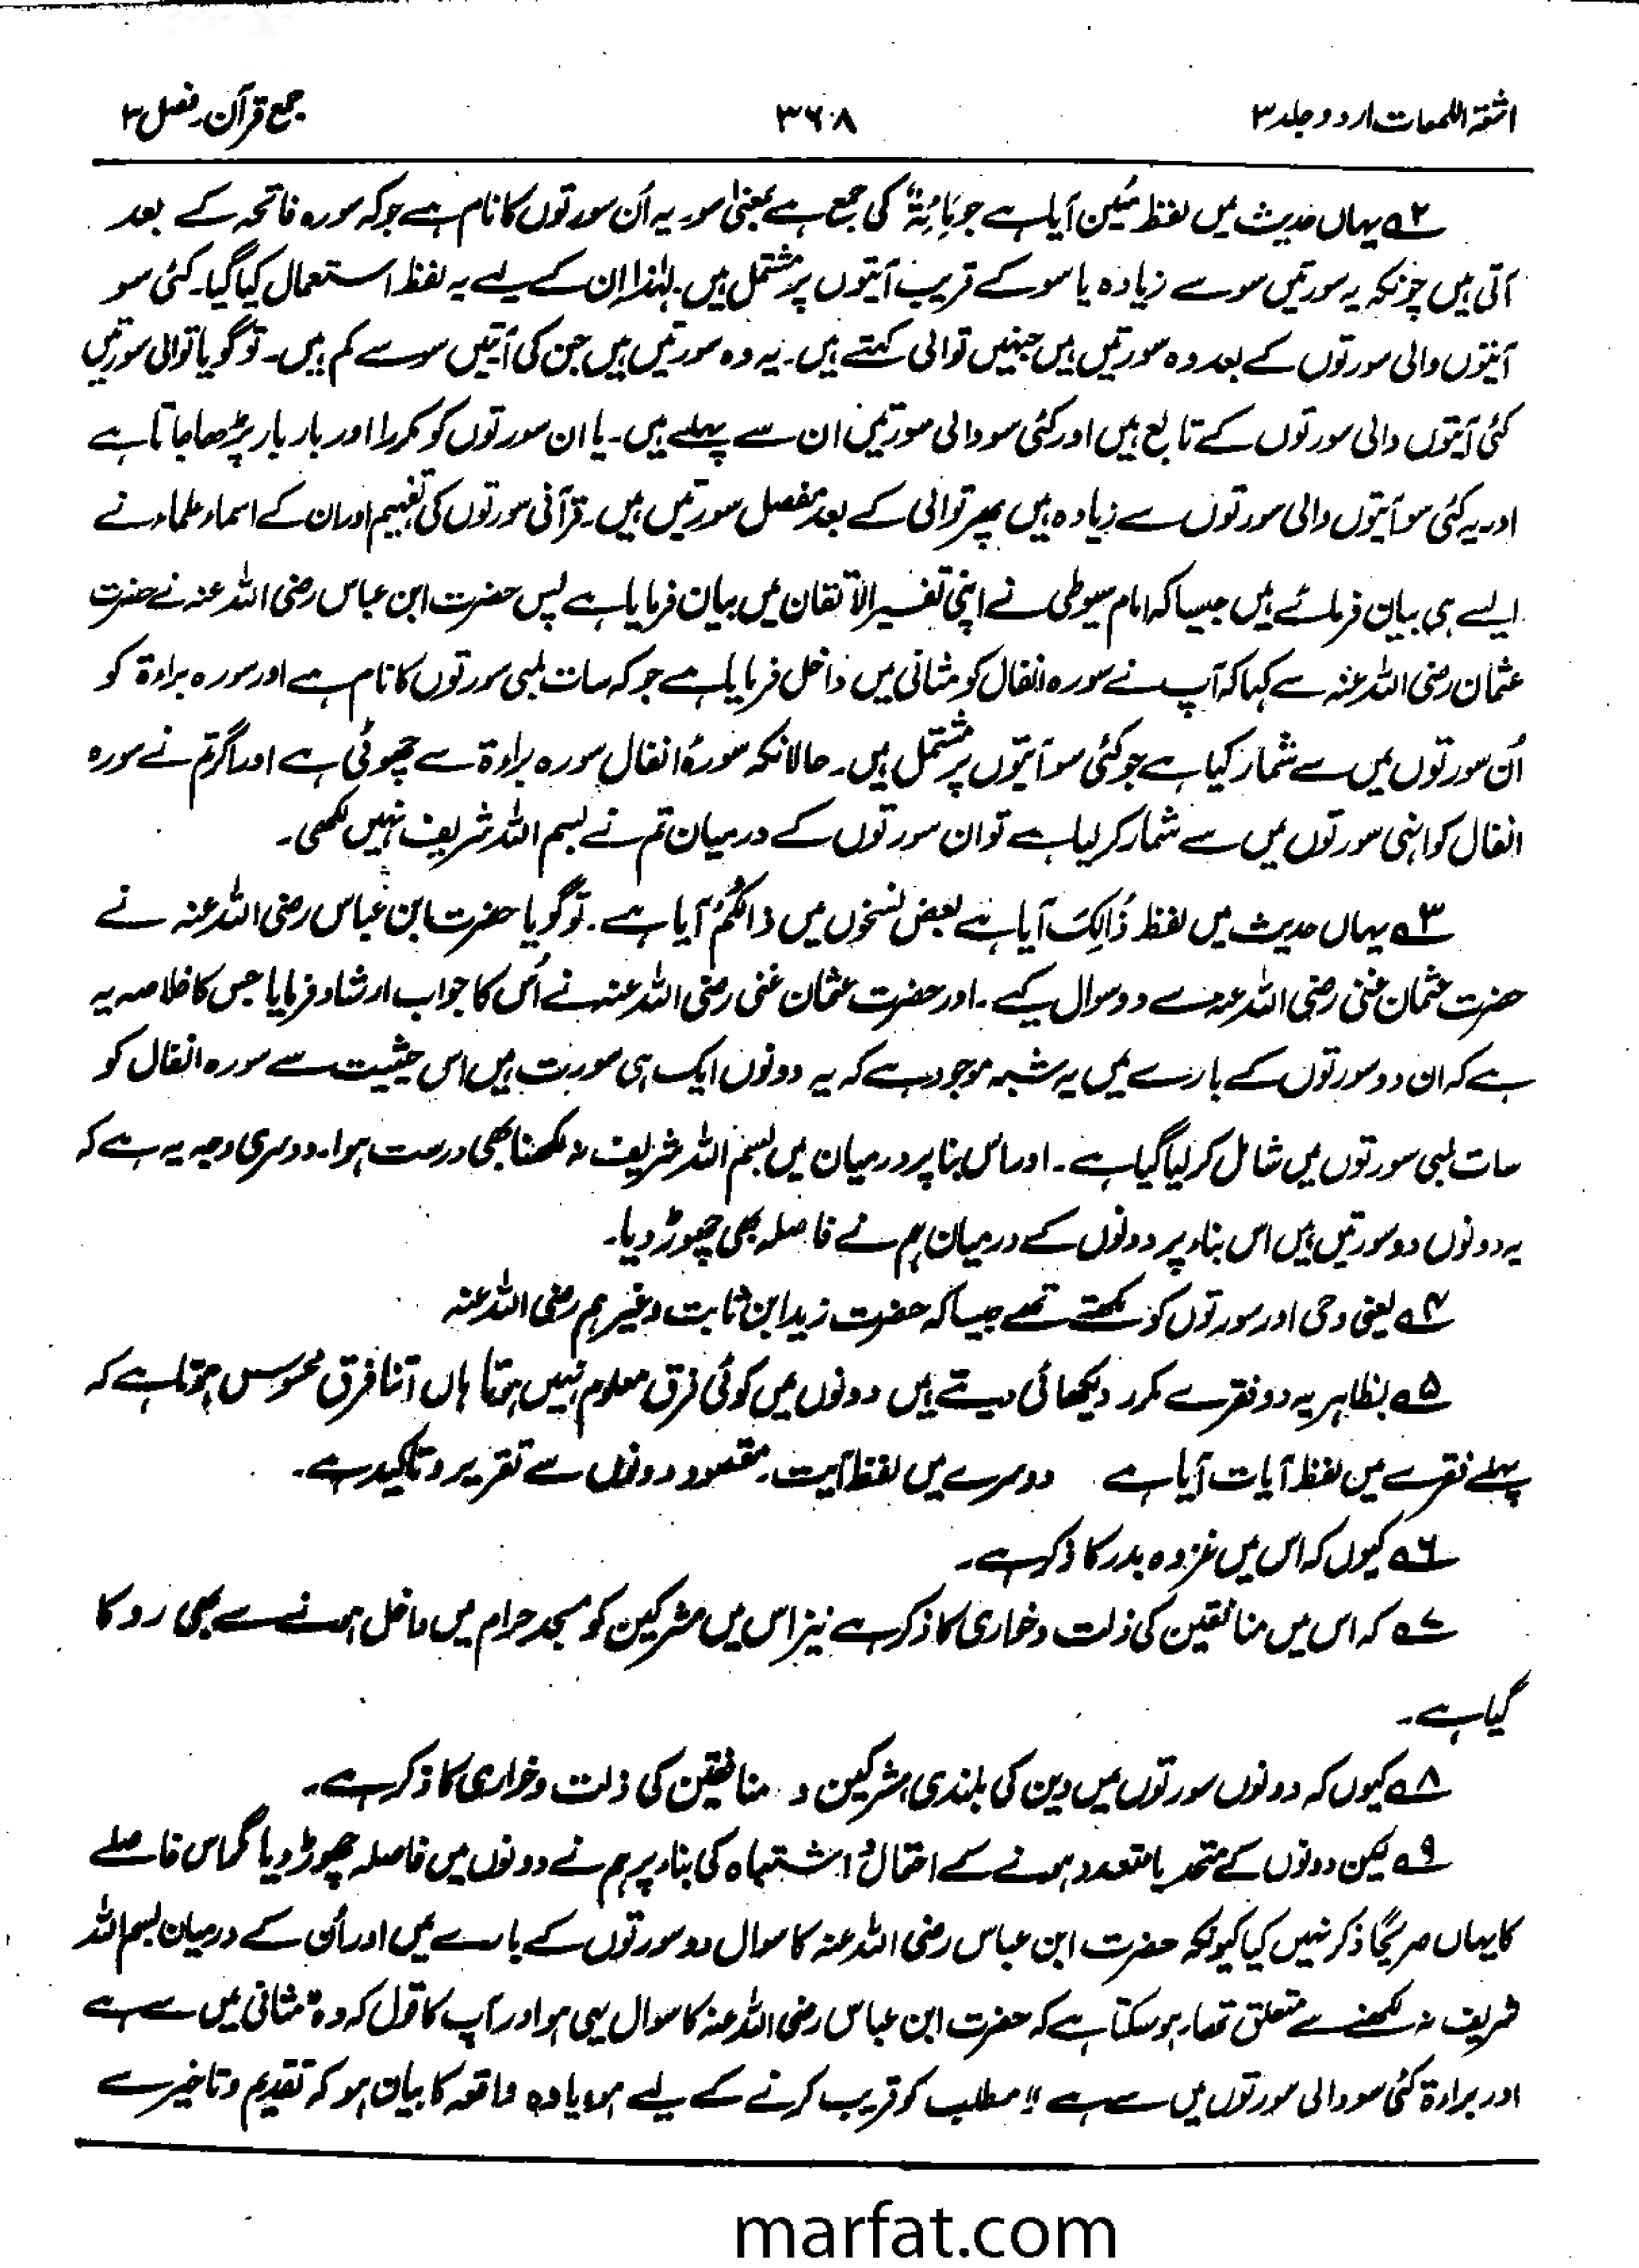 اشعۃ اللمعات اردو جلد ۳
۳۶۸
جمع قرآن۔ فصل ۳
۲؎ یہاں حدیث میں لفظ مئین آیا ہے جو مِائَۃٌ کی جمع ہے بمعنیٰ سو۔ یہ اُن سورتوں کا نام ہے جو کہ سورہ فاتحہ کے بعد
آتی ہیں چونکہ یہ سورتیں سو سے زیادہ یا سو کے قریب آیتوں پر مشتمل ہیں۔ لہٰذا اِن کے لیے یہ لفظ استعمال کیا گیا۔ کئی سو
آیتوں والی سورتوں کے بعد وہ سورتیں ہیں جنہیں توالی کہتے ہیں۔ یہ وہ سورتیں ہیں جن کی آیتیں سو سے کم ہیں۔ تو گویا توالی سورتیں
کئی آیتوں والی سورتوں کے تابع ہیں اور کئی سو والی سورتیں ان سے پہلے ہیں۔ یا ان سورتوں کو مکررا اور بار بار پڑھا جاتا ہے
اور یہ کئی سو آیتوں والی سورتوں سے زیادہ ہیں پھر توالی کے بعد مفصل سورتیں ہیں۔ قرآنی سورتوں کی تفہیم اور ان کے اسماء علماء نے
ایسے ہی بیان فرمائے ہیں جیسا کہ امام سیوطی نے اپنی تفسیر الاتقان میں بیان فرمایا ہے پس حضرت ابن عباس رضی اللہ عنہ نے حضرت
عثمان رضی اللہ عنہ سے کہا کہ آپ نے سورہ انفال کو مثانی میں داخل فرمایا ہے جو کہ سات لمبی سورتوں کا نام ہے اور سورہ براءۃ کو
اُن سورتوں میں سے شمار کیا ہے جو کئی سو آیتوں پر مشتمل ہیں۔ حالانکہ سورۂ انفال سورہ براءۃ سے چھوٹی ہے اور اگر تم نے سورہ
انفال کو انہی سورتوں میں سے شمار کر لیا ہے تو ان سورتوں کے درمیان تم نے بسم اللہ شریف نہیں لکھی۔
۳؎ یہاں حدیث میں لفظ ذٰالِکَ آیا ہے بعض نسخوں میں ذالکُمْ آیا ہے۔ تو گویا حضرت ابن عباس رضی اللہ عنہ نے
حضرت عثمان غنی رضی اللہ عنہ سے دو سوال کیے۔ اور حضرت عثمان غنی رضی اللہ عنہ نے اُس کا جواب ارشاد فرمایا جس کا خلاصہ یہ
ہے کہ ان دو سورتوں کے بارے میں یہ شبہ موجود ہے کہ یہ دونوں ایک ہی سورت ہیں اس حیثیت سے سورہ انفال کو
سات لمبی سورتوں میں شامل کر لیا گیا ہے۔ اور اس بنا پر درمیان میں بسم اللہ شریف نہ لکھنا بھی درست ہوا۔ دوسری وجہ یہ ہے کہ
یہ دونوں دو سورتیں ہیں اس بناء پر دونوں کے درمیان ہم نے فاصلہ بھی چھوڑ دیا۔
۴؎ یعنی وحی اور سورتوں کو لکھتے تھے جیسا کہ حضرت زید ابن ثابت وغیرہم رضی اللہ عنہ
۵؎ بظاہر یہ دو فقرے مکرر دیکھائی دیتے ہیں دونوں میں کوئی فرق معلوم نہیں ہوتا ہاں اتنا فرق محسوس ہوتا ہے کہ
پہلے فقرے میں لفظ آیات آیا ہے دوسرے میں لفظ آیت۔ مقصود دونوں سے تقریر و تاکید ہے۔
۶؎ کیوں کہ اس میں غزوہ بدر کا ذکر ہے۔
۷؎ کہ اس میں منافقین کی ذلت و خاری کا ذکر ہے نیز اس میں مشرکین کو مسجد حرام میں داخل ہونے سے بھی روکا
گیا ہے۔
۸؎ کیوں کہ دونوں سورتوں میں دین کی بلندی، مشرکین و منافقین کی ذلت و خواری کا ذکر ہے۔
۹؎ لیکن دونوں کے متحد یا متعدد ہونے کے احتمال و اشتباہ کی بناء پر ہم نے دونوں میں فاصلہ چھوڑ دیا گمر اس فاصلے
کا یہاں صریحًا ذکر نہیں کیا کیونکہ حضرت ابن عباس رضی اللہ عنہ کا سوال دو سورتوں کے بارے میں اور اُن کے درمیان بسم اللہ
شریف نہ لکھنے سے متعلق تھا۔ ہو سکتا ہے کہ حضرت ابن عباس رضی اللہ عنہ کا سوال یہی ہو اور آپ کا قول کہ وہ "مثانی میں سے ہے
اور براءۃ کئی سو والی سورتوں میں سے ہے" مطلب کو قریب کرنے کے لیے ہو یا وہ واقعہ کا بیان ہو کہ تقدیم و تاخیر سے
marfat.com